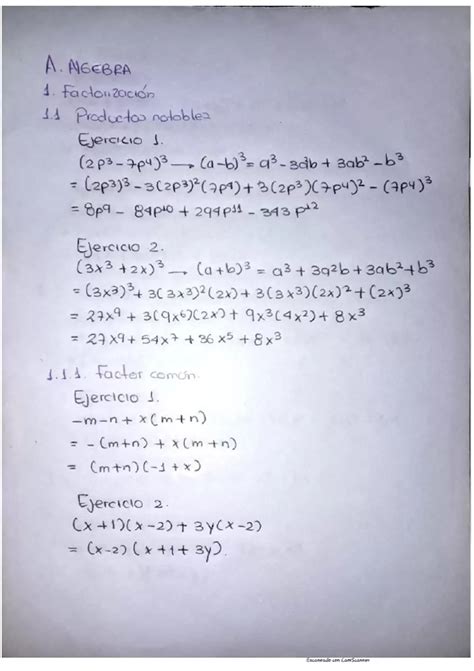 A. ALGEBRA
1. Factorización
1.1 Productos notables
Ejercicio 1.
(2p³-7p4)³ → (a-b)³ = a³ - 3db + 3ab² - b³
= (2p³)³ - 3(2p³)²(7p4) + 3(2p³)(7p4)² - (7p4)³
= 8p9 - 84p¹⁰ + 294p¹¹ - 343p¹²
Ejercicio 2.
(3x³ + 2x)³ → (a+b)³ = a³ + 3a²b + 3ab² + b³
= (3x³)³ + 3(3x³)²(2x) + 3(3x³)(2x)² + (2x)³
= 27x⁹ + 3(9x⁶)(2x) + 9x³(4x²) + 8x³
= 27x9 + 54x⁷ + 36x⁵ + 8x³
1.1.1. Factor común.
Ejercicio 1.
-m-n + x(m+n)
= -(m+n) + x(m+n)
= (m+n)(-1+x)
Ejercicio 2.
(x+1)(x-2) + 3y(x-2)
= (x-2)(x+1+3y).
Escaneado con CamScanner